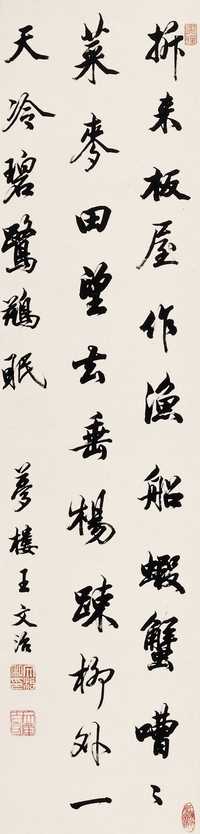 拆来板屋作渔船蝦蟹嘈〻
菜麥田望去垂楊踈柳外一
天冷碧鷺鷀眠
夢樓王文治